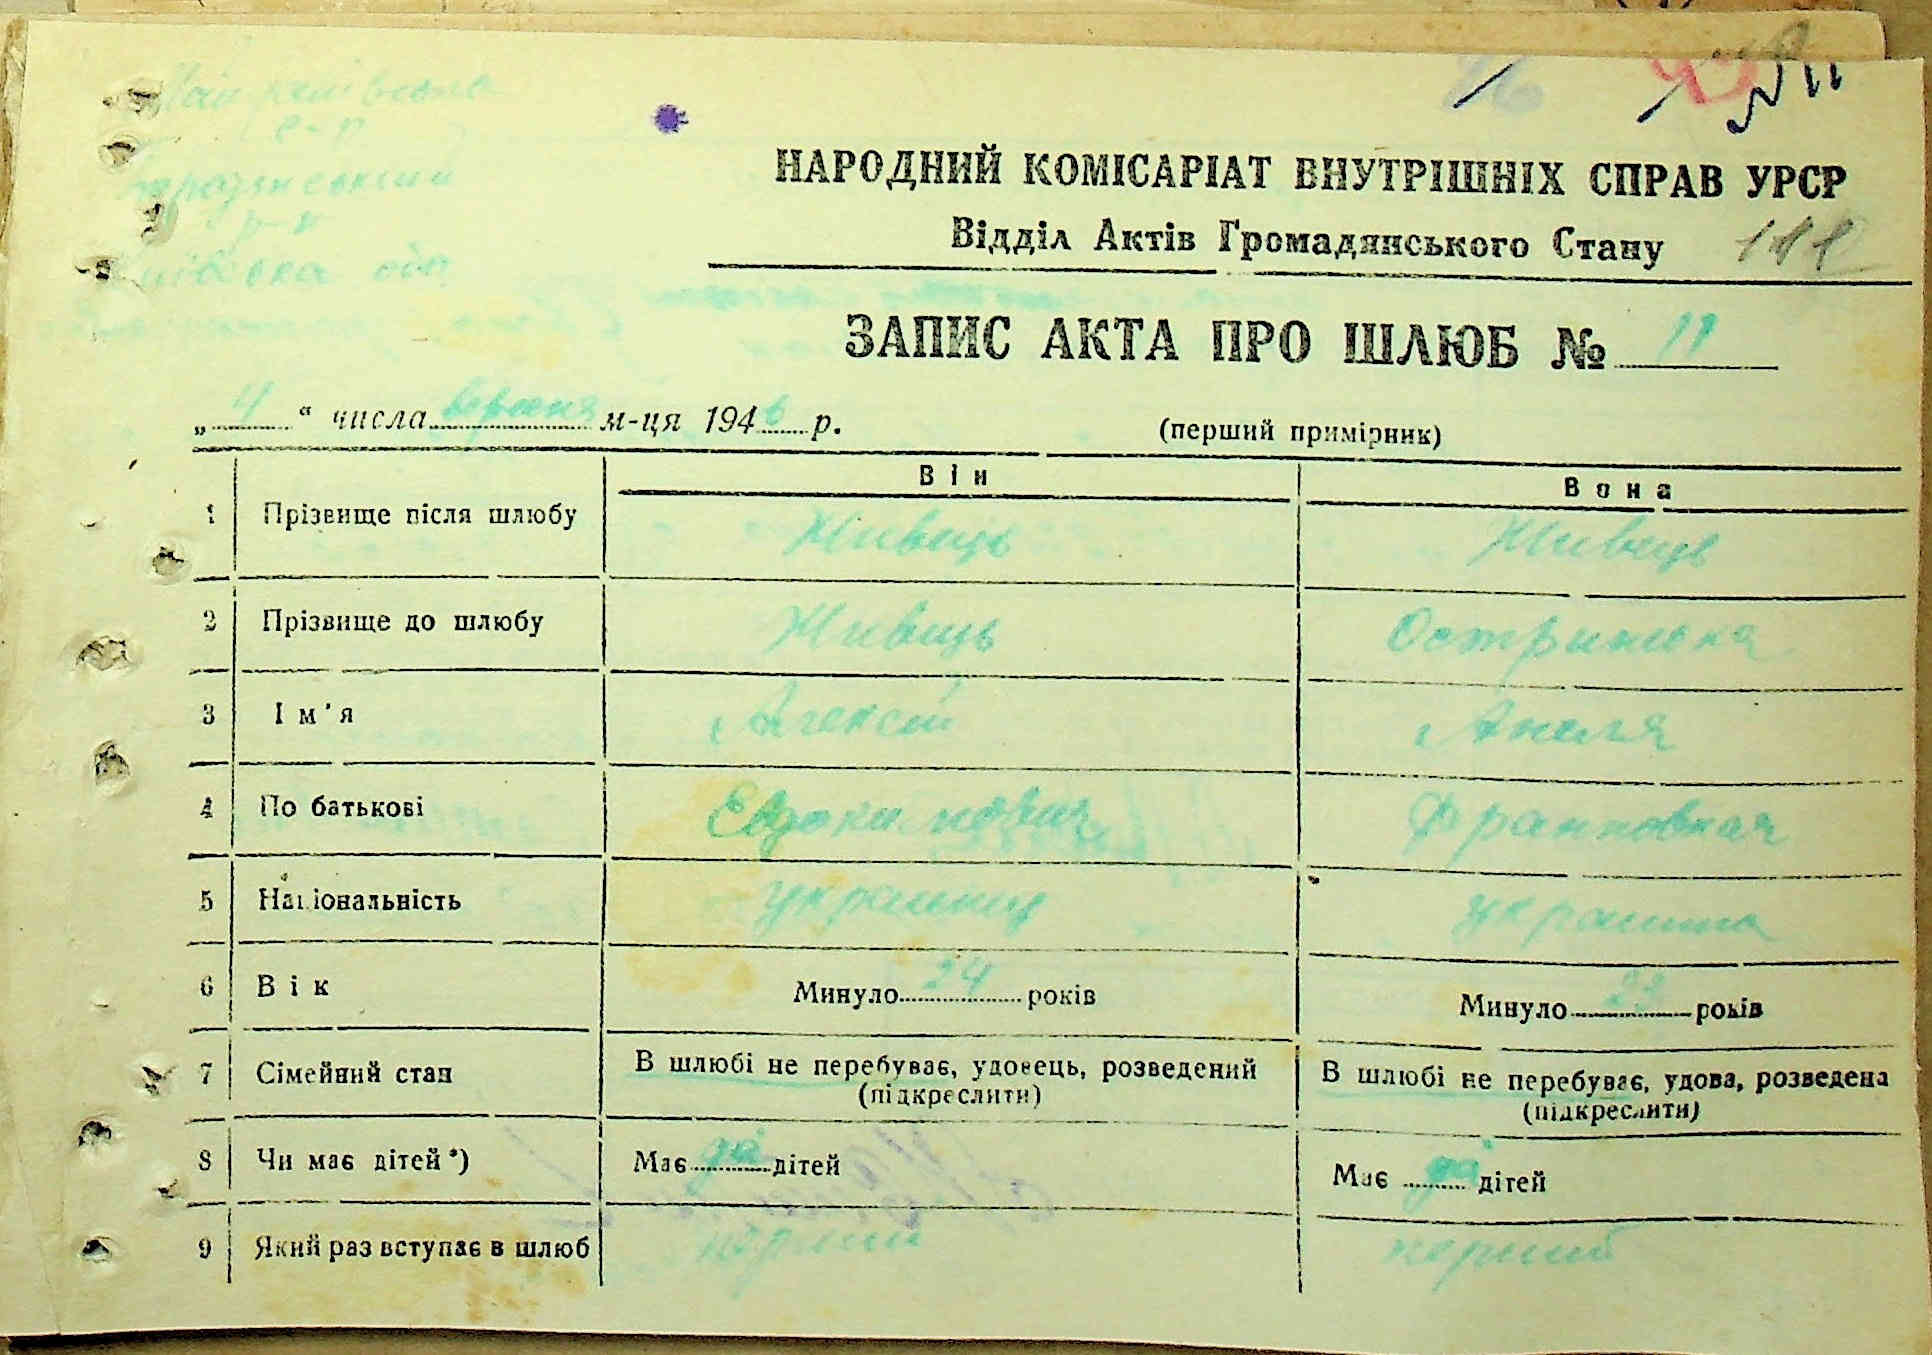 с-р
р-н
обл
НАРОДНИЙ КОМІСАРІАТ ВНУТРІШНІХ СПРАВ УРСР
Відділ Актів Громадянського Стану
ЗАПИС АКТА ПРО ШЛЮБ № 11
„ 4 " числа вересня м-ця 1946 р. (перший примірник)
Він Вона
1 Прізвище після шлюбу Живець Живець
2 Прізвище до шлюбу Живець
3 Ім'я Алексій Анеля
4 По батькові Евдокимович Франковная
5 Національність українец українка
6 Вік Минуло 24 років Минуло 23 років
7 Сімейний стан В шлюбі не перебуває, удовець, розведений (підкреслити) В шлюбі не перебуває, удова, розведена (підкреслити)
8 Чи має дітей *) Має да дітей Має да дітей
9 Який раз вступає в шлюб перший перший